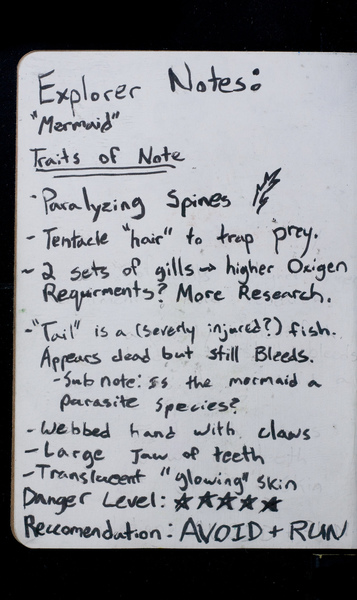 Explorer Notes:
"Mermaid"
Traits of Note
- Paralyzing Spines
- Tentacle "hair" to trap prey.
~ 2 sets of gills → higher Oxigen
Requirments? More Research.
- "Tail" is a (severly injured?) fish.
Appears dead but still Bleeds.
- Sub note: Is the mermaid a
parasite species?
- Webbed hand with claws
- Large Jaw of teeth
- Translucent "glowing" skin
Danger Level: ★★★★★
Reccomendation: AVOID + RUN